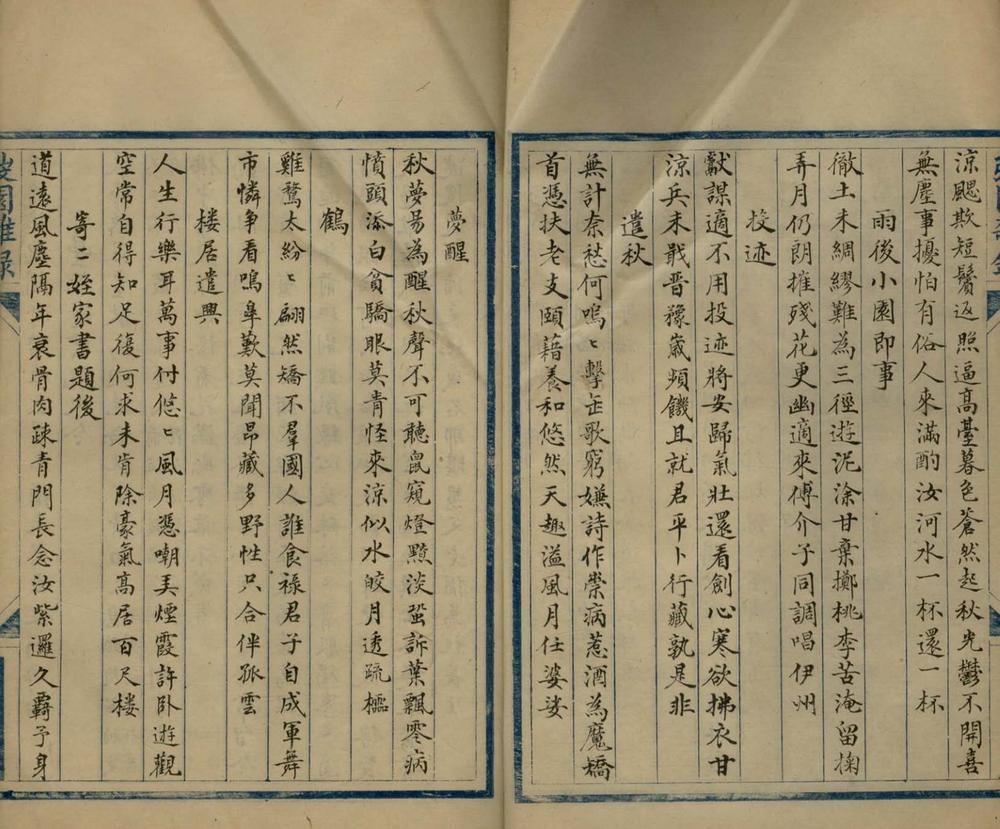 涼颸欺短鬢返照逼高臺暮色蒼然起秋光鬱不開喜
無塵事擾怕有俗人來滿酌汝河水一杯還一杯
雨後小園即事
徹土未綢繆難為三徑遊泥塗甘棄擲桃李苦淹留掬
弄月仍朗摧殘花更幽適來傅介子同調唱伊州
投迹
獻謀適不用投迹將安歸氣壯還看劍心寒欲拂衣甘
涼兵未戢晋豫歲頻饑且就君平卜行藏孰是非
遣秋
無計奈愁何嗚〻擊缶歌窮嫌詩作祟病惹酒為魔搔
首憑扶老支頤藉養和悠然天趣溢風月任婆娑
夢醒
秋夢易為醒秋聲不可聽鼠窺燈黯淡蛩訴葉飄零病
憤頭添白貧驕眼莫青怪來涼似水皎月透疏櫺
鶴
雞鶩太紛〻翩然矯不羣國人誰食祿君子自成軍舞
市憐争看鳴皋歎莫聞昂藏多野性只合伴孤雲
楼居遣興
人生行樂耳萬事付悠〻風月憑嘲美煙霞許卧遊觀
空常自得知足復何求未肯除豪氣高居百尺楼
寄二姪家書題後
道遠風塵隔年衰骨肉疎青門長念汝紫邏久覊予身